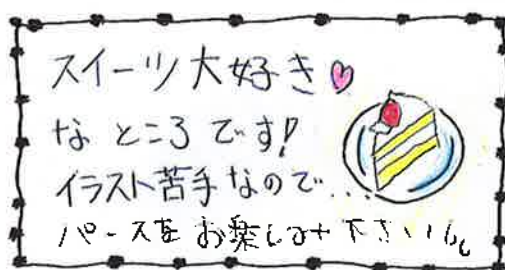 スイーツ大好き♡
なところです!
イラスト苦手なので...
パースをお楽しみ下さい